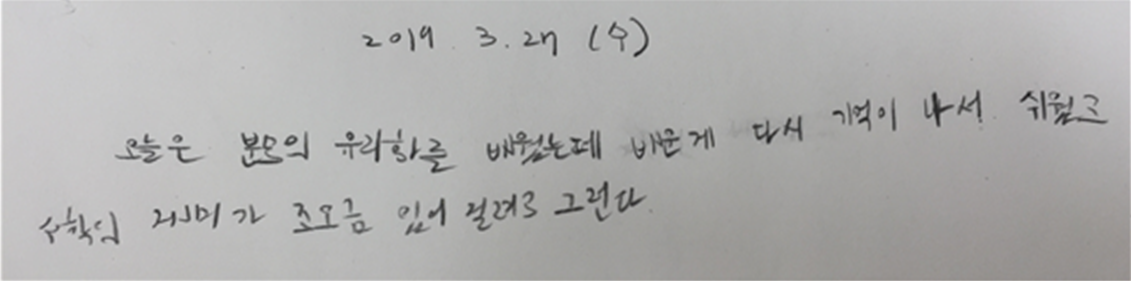 2019. 3. 27 (수)
오늘은 분모의 유리화를 배웠는데 배운게 다시 기억이 나서 쉬웠고
수학이 재미가 조오금 있어 질려고 그런다.